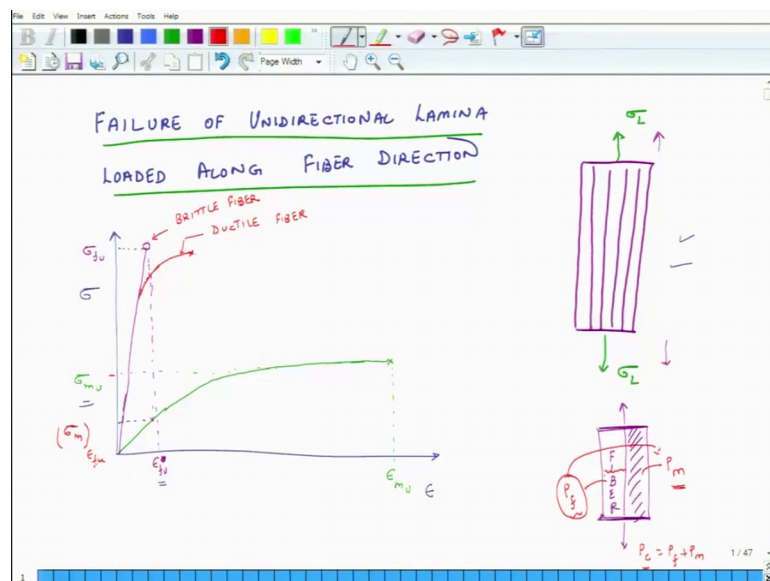 File Edit View Insert Actions Tools Help
B I
Page Width
FAILURE OF UNIDIRECTIONAL LAMINA
LOADED ALONG FIBER DIRECTION
BRITTLE FIBER
DUCTILE FIBER
σfu
σ
σmu
(σm)εfu
εfu
εmu
ε
σL
σL
FIBER
Pf
Pm
Pc = Pf + Pm
1 / 47
1